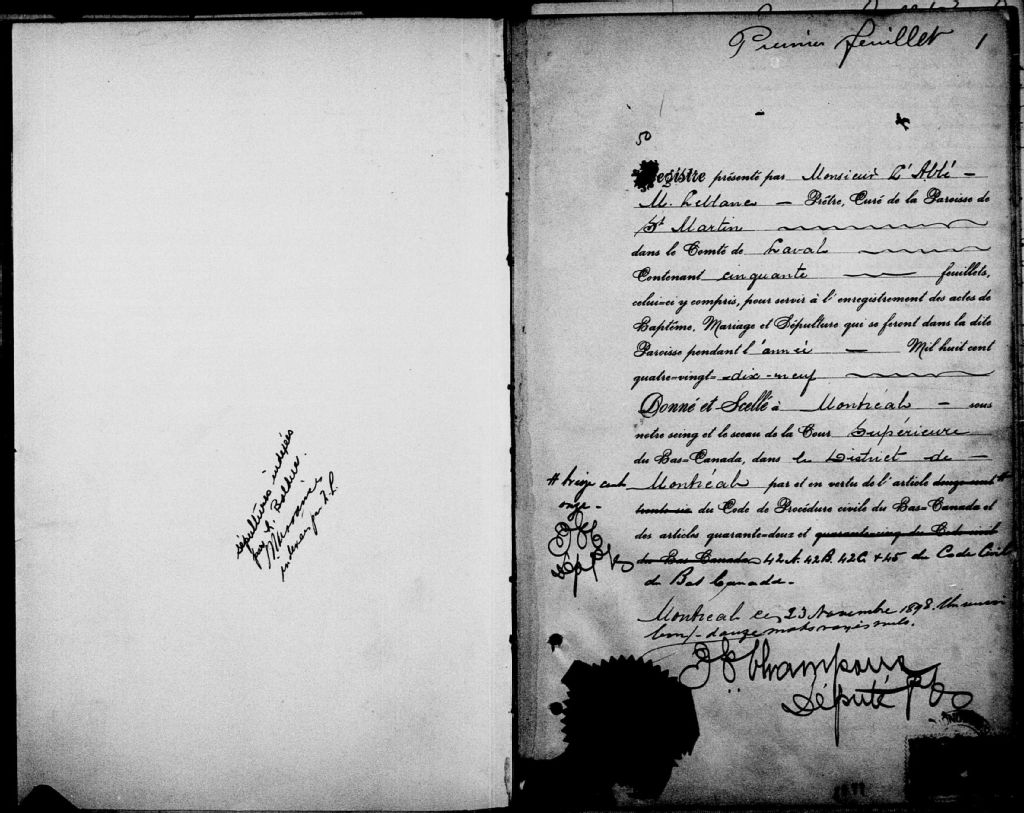 Sépultures indexées
par
Premier feuillet 1
50
Registre présenté par Monsieur L'Abbé –
M. Leblanc – Prêtre, Curé de la Paroisse de
St Martin
dans le Comté de Laval
Contenant cinquante feuillets,
celui-ci y compris, pour servir à l'enregistrement des actes de
Baptême, Mariage et Sépulture qui se feront dans la dite
Paroisse pendant l'année – Mil huit cent
quatre-vingt-dix-neuf
Donné et Scellé à Montréal – sous
notre seing et le sceau de la Cour Supérieure
du Bas-Canada, dans le District de –
Montréal par et en vertu de l'article douze-cent #
trente-six du Code de Procédure civile du Bas-Canada et
# treize cent
onze -
des articles quarante-deux et quarante-cinq du Code civil
du Bas-Canada, 42A. 42B. 42C. + 45 du Code Civil
du Bas Canada.
Montréal ce 23 Novembre 1898. Un renvoi
bon/- douze mots rayés nuls.
Champoux
Député P
1899